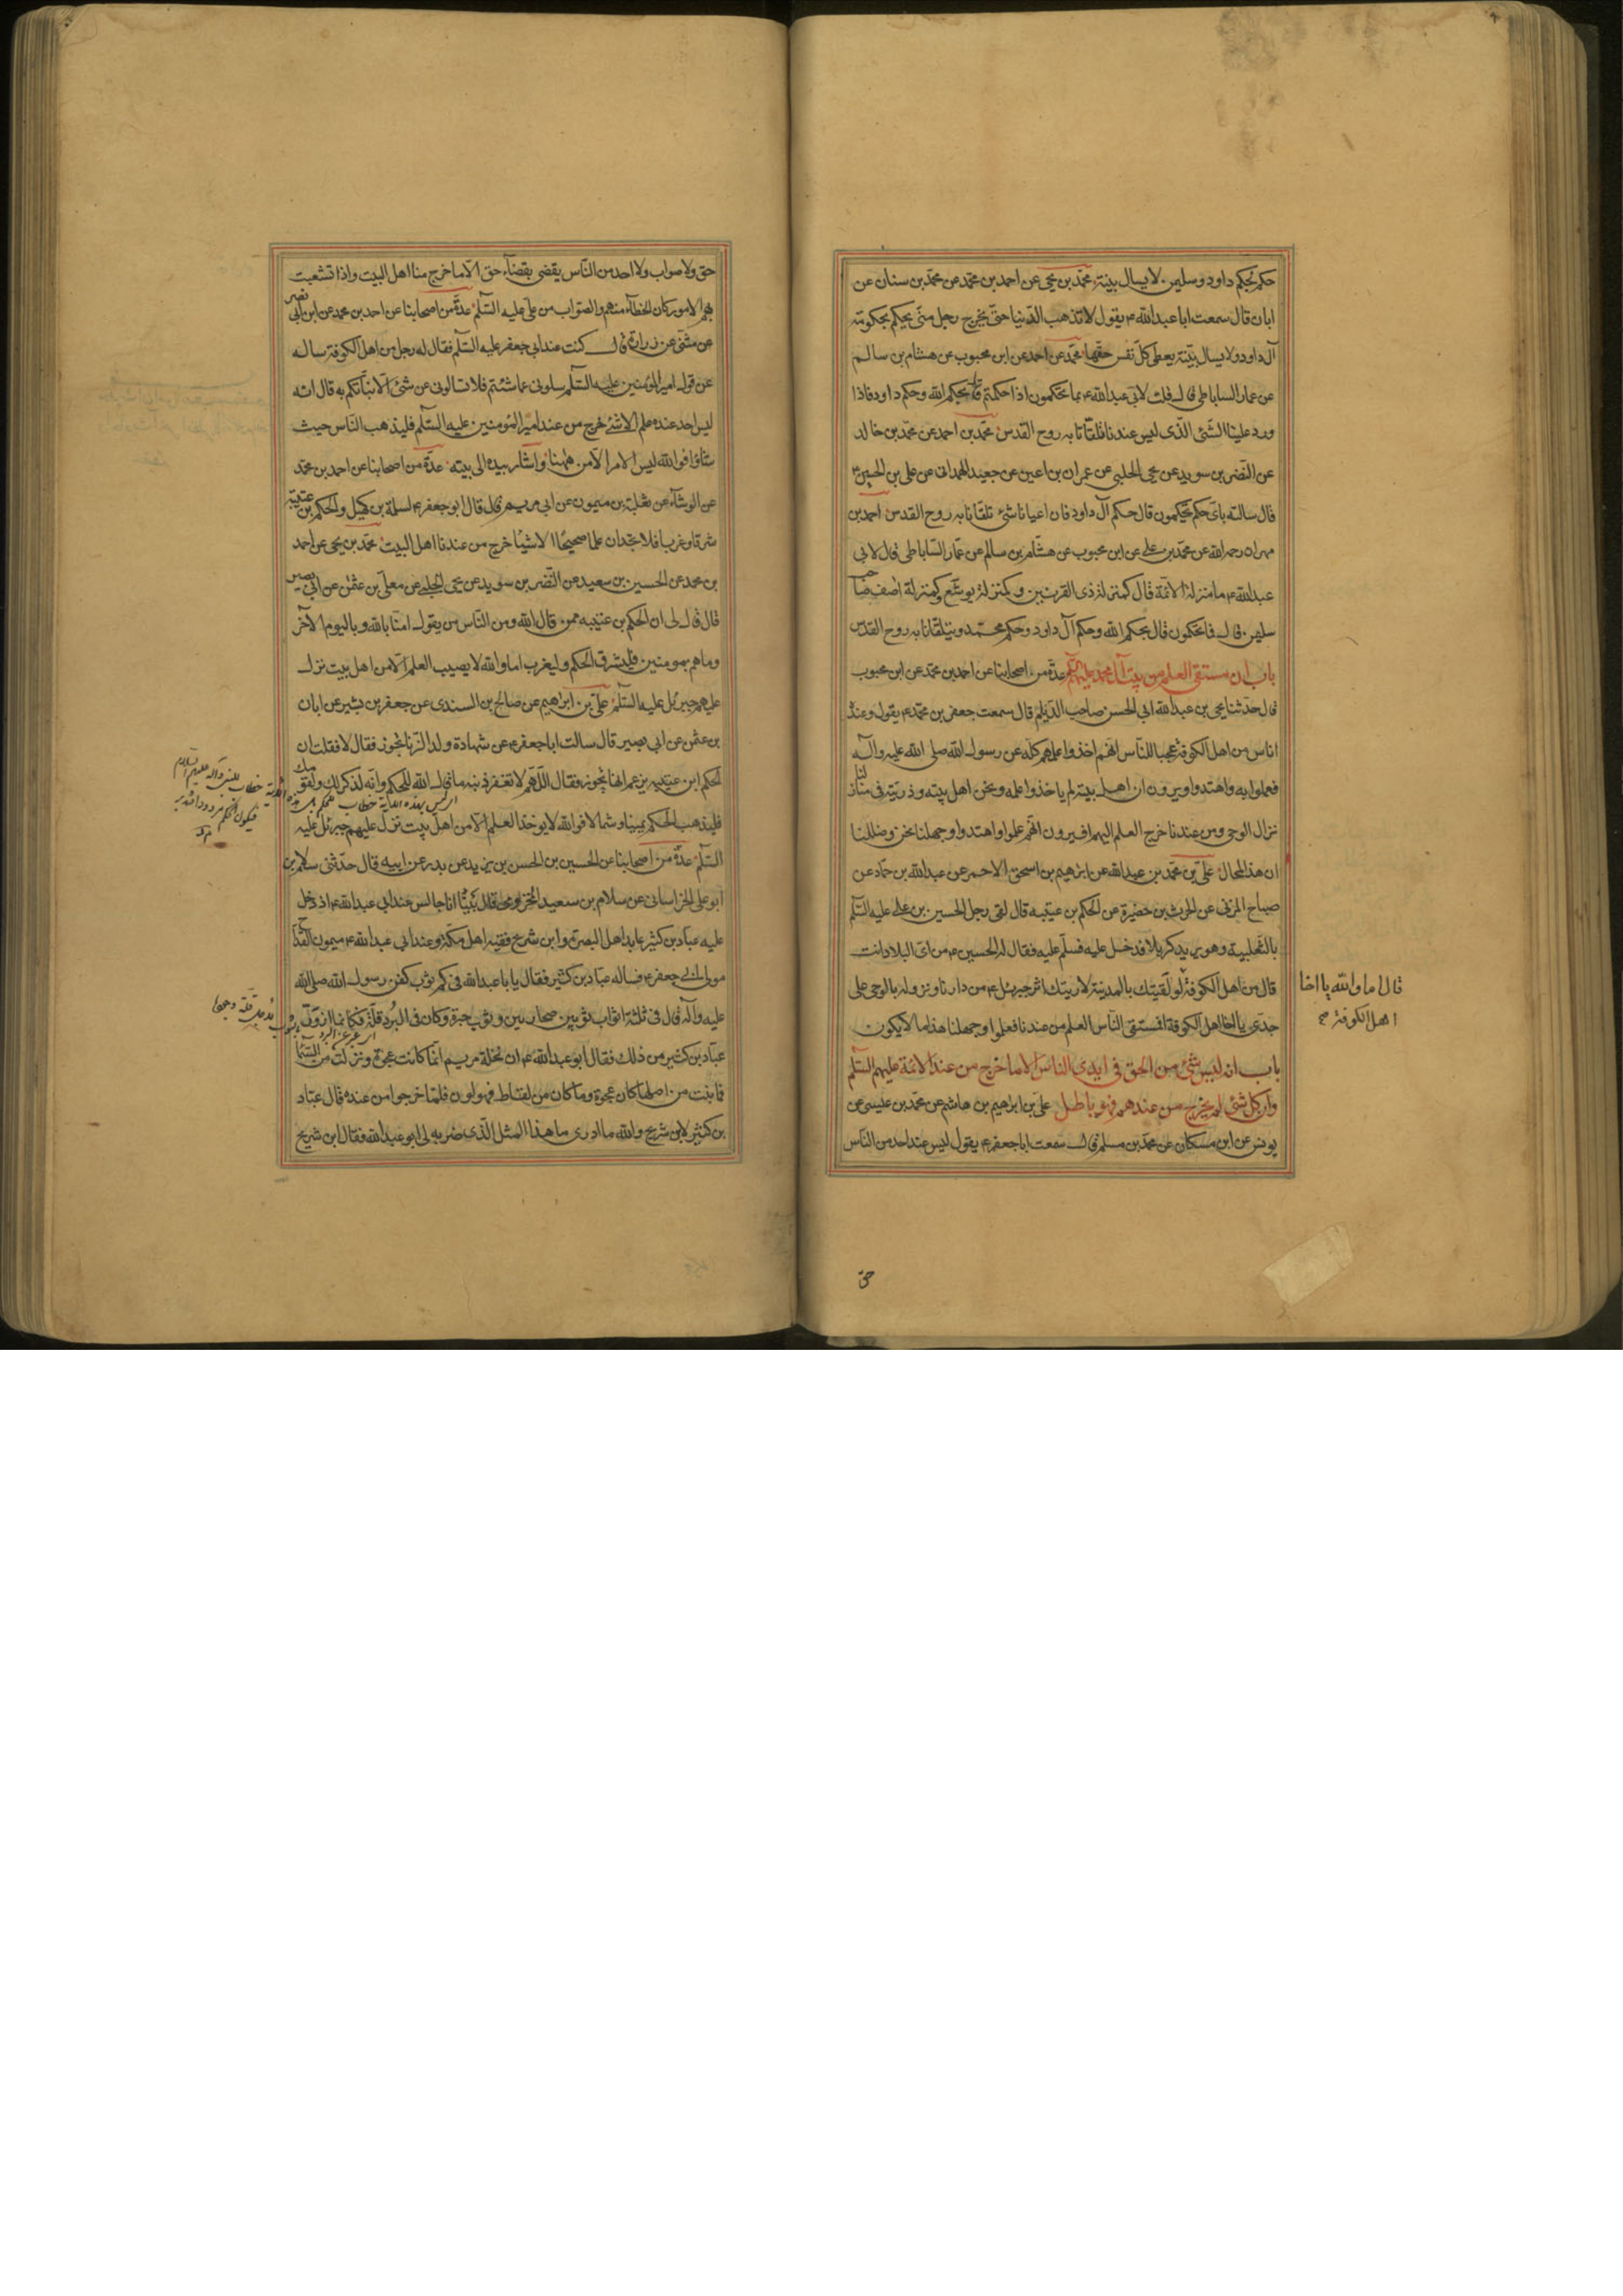 حكم بحكم داود وسليمن لا يسال بينة محمد بن يحيى عن احمد بن محمد عن محمد بن سنان عن
ابان قال سمعت ابا عبدالله ع يقول لا تذهب الدنيا حتى يخرج رجل منى يحكم بحكومة
آل داود ولا يسال بينة يعطى كل نفس حقها محمد عن احمد عن ابن محبوب عن هشام بن سالم
عن عمار الساباطى قال قلت لابى عبدالله ع بما تحكمون اذا حكمتم قال بحكم الله وحكم داود فاذا
ورد علينا الشئ الذى ليس عندنا تلقانا به روح القدس محمد بن احمد عن محمد بن خالد
عن النضر بن سويد عن يحيى الحلبى عن عمران بن اعين عن جعيد الهمدانى عن على بن الحسين ع
قال سالته باى حكم تحكمون قال حكم آل داود فان اعيانا شئ تلقانا به روح القدس احمد بن
مهران رحمه الله عن محمد بن على عن ابن محبوب عن هشام بن سالم عن عمار الساباطى قال قال لابى
عبدالله ع ما منزلة الائمة قال كمنزلة ذى القرنين وكمنزلة يوشع وكمنزلة آصف صاحب
سليمن قال فبما تحكمون قال بحكم الله وحكم آل داود وحكم محمد ويتلقانا به روح القدس
باب ان مستقى العلم من بيت آل محمد عليهم السلم عدة من اصحابنا عن احمد بن محمد عن ابن محبوب
قال حدثنا يحيى بن عبدالله ابى الحسن صاحب الديلم قال سمعت جعفر بن محمد ع يقول وعنده
اناس من اهل الكوفة عجبا للناس انهم اخذوا علمهم كله عن رسول الله صلى الله عليه وآله
فعملوا به واهتدوا ويرون ان اهل بيته لم ياخذوا علمه ونحن اهل بيته وذريته فى منازلنا
نزل الوحى ومن عندنا خرج العلم اليهم افيرون انهم علموا واهتدوا وجهلنا نحن وضللنا
ان هذا لمحال على بن محمد بن عبدالله عن ابرهيم بن اسحق الاحمر عن عبدالله بن حماد عن
صباح المزنى عن الحرث بن حضيرة عن الحكم بن عتيبة قال لقى رجل الحسين بن على عليه السلم
بالثعلبية وهو يريد كربلا فدخل عليه فسلم عليه فقال له الحسين ع من اى البلاد انت
قال من اهل الكوفة لو لقيتك بالمدينة لاريتك اثر جبرئيل ع من دارنا ونزوله بالوحى على
جدى يا اخا اهل الكوفة افمستقى الناس العلم من عندنا فعلموا وجهلنا هذا ما لا يكون
باب انه ليس شئ من الحق فى ايدى الناس الا ما خرج من عند الائمة عليهم السلم
وان كل شئ لم يخرج من عندهم فهو باطل على بن ابراهيم بن هاشم عن محمد بن عيسى عن
يونس عن ابن مسكان عن محمد بن مسلم قال سمعت ابا جعفر ع يقول ليس عند احد من الناس
قال اما والله يا اخا
اهل الكوفة صح
حق
حق ولا صواب ولا احد من الناس يقضى بقضاء حق الا ما خرج منا اهل البيت واذا تشعبت
بهم الامور كان الخطاء منهم والصواب من على عليه السلم عدة من اصحابنا عن احمد بن محمد عن ابن ابى نصر
عن مثنى عن زرارة قال كنت عند ابى جعفر عليه السلم فقال له رجل من اهل الكوفة ساله
عن قول امير المؤمنين عليه السلم سلونى عما شئتم فلا تسالونى عن شئ الا نبأتكم به قال انه
ليس احد عنده علم الا شئ خرج من عند امير المؤمنين عليه السلم فليذهب الناس حيث
شاؤا فوالله ليس الامر الا من ههنا واشار بيده الى بيته عدة من اصحابنا عن احمد بن محمد
عن الوشاء عن ثعلبة بن ميمون عن ابى مريم قال قال ابو جعفر ع لسلمة بن كهيل والحكم بن عتيبة
شرقا وغربا فلا تجدان علما صحيحا الا شيئا خرج من عندنا اهل البيت محمد بن يحيى عن احمد
بن محمد عن الحسين بن سعيد عن النضر بن سويد عن يحيى الحلبى عن معلى بن عثمن عن ابى بصير
قال قال لى ان الحكم بن عتيبة ممن قال الله ومن الناس من يقول امنا بالله وباليوم الآخر
وما هم بمومنين فليشرق الحكم وليغرب اما والله لا يصيب العلم الا من اهل بيت نزل
عليهم جبرئيل عليه السلم على بن ابرهيم عن صالح بن السندى عن جعفر بن بشير عن ابان
بن عثمن عن ابى بصير قال سالت ابا جعفر ع عن شهادة ولد الزنا تجوز فقال لا فقلت ان
الحكم ابن عتيبة يزعم انها تجوز فقال اللهم لا تغفر ذنبه ما قال الله للحكم وانه لذكر لك ولقومك
فليذهب الحكم يمينا وشمالا فوالله لا يوخذ العلم الا من اهل بيت نزل عليهم جبرئيل عليه
السلم عدة من اصحابنا عن الحسين بن الحسن بن يزيد عن بدر عن ابيه قال حدثنى سلام بن
ابو على الخراسانى عن سلام بن سعيد المخزومى قال بينا انا جالس عند ابى عبدالله ع اذ دخل
عليه عباد بن كثير عابد اهل البصرة وابن شريح فقيه اهل مكة وعند ابى عبدالله ع ميمون القداح
مولى ابى جعفر ع فساله عباد بن كثير فقال يا با عبدالله فى كم ثوب كفن رسول الله صلى الله
عليه وآله قال فى ثلثة اثواب ثوبين صحاريين وثوب حبرة وكان فى البرد قلة فكانما ازور
عباد بن كثير من ذلك فقال ابو عبدالله ع ان نخلة مريم انما كانت عجوة ونزلت من السماء
فما نبت من اصلها كان عجوة وما كان من لقاط فهو لون فلما خرجوا من عنده قال عباد
بن كثير لابن شريح والله ما ادرى ما هذا المثل الذى ضربه لى ابو عبدالله فقال ابن شريح